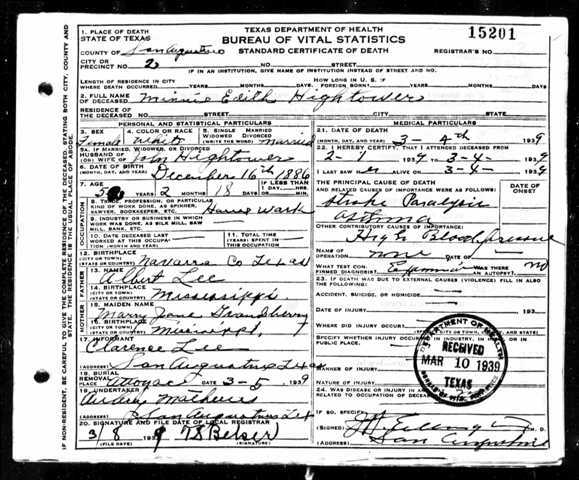 TEXAS DEPARTMENT OF HEALTH
BUREAU OF VITAL STATISTICS
STANDARD CERTIFICATE OF DEATH
15201
1. PLACE OF DEATH
STATE OF TEXAS
COUNTY OF San Augustine
CITY OR PRECINCT NO. 2
REGISTRAR'S NO.
NO. STREET
IF IN AN INSTITUTION, GIVE NAME OF INSTITUTION INSTEAD OF STREET AND NO.
LENGTH OF RESIDENCE IN CITY WHERE DEATH OCCURRED YEARS MONTHS DAYS
HOW LONG IN U. S. IF FOREIGN BORN? YEARS MONTHS DAYS
2. FULL NAME OF DECEASED Minnie Edith Hightower
RESIDENCE OF THE DECEASED STREET NO. CITY COUNTY STATE
PERSONAL AND STATISTICAL PARTICULARS
3. SEX Female
4. COLOR OR RACE White
5. SINGLE MARRIED WIDOWED DIVORCED Married
5a. IF MARRIED, WIDOWED, OR DIVORCED
HUSBAND OF OR WIFE OF John Hightower
6. DATE OF BIRTH December 16th 1886
(MONTH, DAY, AND YEAR)
7. AGE YEARS MONTHS 2 DAYS 18
IF LESS THAN 1 DAY, HRS. MIN.
8. TRADE, PROFESSION, OR PARTICULAR KIND OF WORK DONE, AS SPINNER, SAWYER, BOOKKEEPER, ETC. House Work
9. INDUSTRY OR BUSINESS IN WHICH WORK WAS DONE, AS SILK MILL, SAW MILL, BANK, ETC.
10. DATE DECEASED LAST WORKED AT THIS OCCUPATION (MONTH AND YEAR)
11. TOTAL TIME (YEARS) SPENT IN THIS OCCUPATION
12. BIRTHPLACE Navarro Co Texas
(STATE OR COUNTRY)
FATHER
13. NAME Albert Lee
14. BIRTHPLACE Mississippi
(CITY OR TOWN) (STATE OR COUNTRY)
MOTHER
18. MAIDEN NAME Marry Jane
16. BIRTHPLACE
(CITY OR TOWN) (STATE OR COUNTRY)
17 INFORMANT Clarence Lee
(ADDRESS) San Augustine Texas
18. BURIAL REMOVAL
PLACE Attoyac DATE 3-5 1939
19. UNDERTAKER
(ADDRESS) San Augustine Tex
20. SIGNATURE AND FILE DATE OF LOCAL REGISTRAR
3/8 1939
(FILE DATE) (SIGNATURE)
MEDICAL PARTICULARS
21. DATE OF DEATH
(MONTH, DAY, AND YEAR) 3-4th 1939
22. I HEREBY CERTIFY THAT I ATTENDED THE DECEASED FROM
2-1 1939 TO 3-4- 1939
I LAST SAW ALIVE ON 3-4- 1939
THE PRINCIPAL CAUSE OF DEATH AND RELATED CAUSES OF IMPORTANCE WERE AS FOLLOWS:
DATE OF ONSET
Stroke Paralysis
OTHER CONTRIBUTORY CAUSES OF IMPORTANCE WERE:
High Blood pressure
NAME OF OPERATION none DATE OF
WHAT TEST CONFIRMED DIAGNOSIS? WAS THERE AN AUTOPSY? no
23. IF DEATH WAS DUE TO EXTERNAL CAUSES (VIOLENCE) FILL IN ALSO THE FOLLOWING:
ACCIDENT, SUICIDE, OR HOMICIDE
DATE OF INJURY 193
WHERE DID INJURY OCCUR?
SPECIFY WHETHER INJURY OCCURRED IN INDUSTRY, HOME, OR IN PUBLIC PLACE.
MANNER OF INJURY
NATURE OF INJURY
24. WAS DISEASE OR INJURY IN ANY WAY RELATED TO OCCUPATION OF DECEASED?
IF SO, SPECIFY
(SIGNED) M. D.
(ADDRESS) San Augustine
DEPARTMENT OF HEALTH
RECEIVED
MAR 10 1939
TEXAS